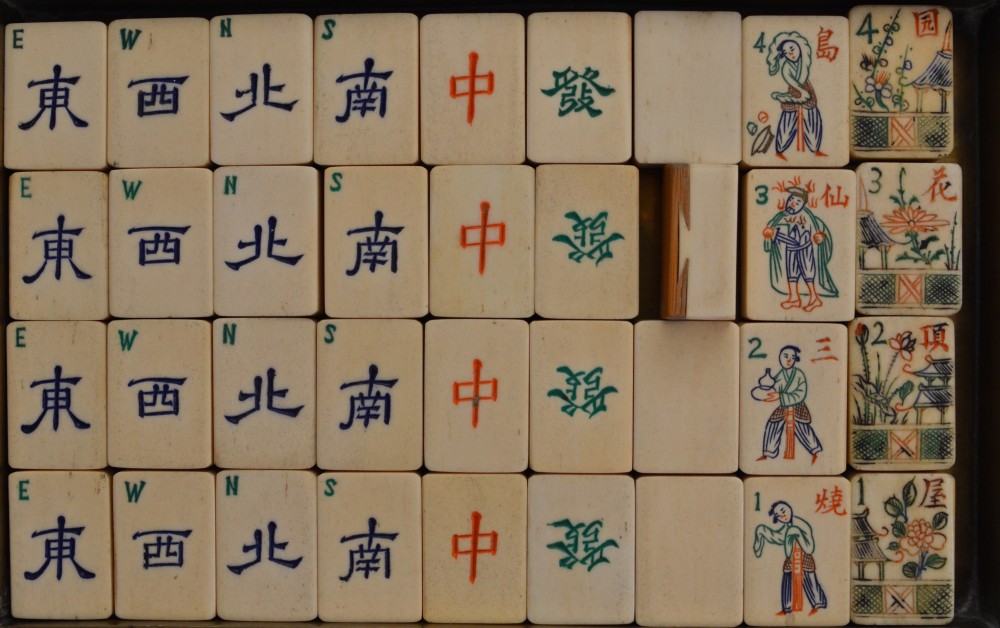 E W N S 4 島 4 园
東 西 北 南 中 發
E W N S 3 仙 3 花
東 西 北 南 中 發
E W N S 2 三 2 頂
東 西 北 南 中 發
E W N S 1 燒 1 屋
東 西 北 南 中 發